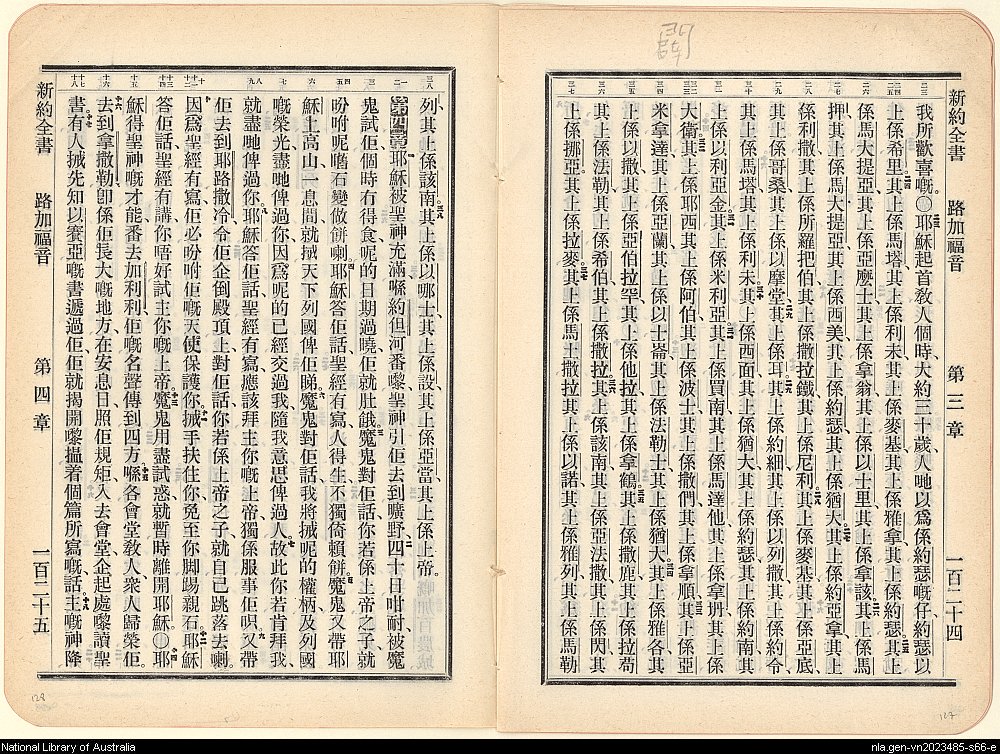 新約全書　路加福音　第三章　一百二十四
我所歡喜嘅。〇耶穌起首教人個時、大約三十歲、人哋以爲係約瑟嘅仔、約瑟以
上係希里、其上係馬塔、其上係利未、其上係麥基、其上係雅拿、其上係約瑟、其上
係馬大提亞、其上係亞麼士、其上係拿翁、其上係以士里、其上係拿該、其上係馬
押、其上係馬大提亞、其上係西美、其上係約瑟、其上係猶大、其上係約亞拿、其上
係利撒、其上係所羅把伯、其上係撒拉鐵、其上係尼利、其上係麥基、其上係亞底、
其上係哥桑、其上係以摩堂、其上係耳、其上係約細、其上係以列撒、其上係約令、
其上係馬塔、其上係利未、其上係西面、其上係猶大、其上係約瑟、其上係約南、其
上係以利亞金、其上係米利亞、其上係買南、其上係馬達他、其上係拿坍、其上係
大衛、其上係耶西、其上係阿伯、其上係波士、其上係撒們、其上係拿順、其上係亞
米拿達、其上係亞蘭、其上係以士崙、其上係法勒士、其上係猶大、其上係雅各、其
上係以撒、其上係亞伯拉罕、其上係他拉、其上係拿鶴、其上係撒鹿、其上係拉苟、
其上係法勒、其上係希伯、其上係撒拉、其上係該南、其上係亞法撒、其上係閃、其
上係挪亞、其上係拉麥、其上係馬土撒拉、其上係以諾、其上係雅列、其上係馬勒
新約全書　路加福音　第四章　一百二十五
列、其上係該南、其上係以哪士、其上係設、其上係亞當、其上係上帝。
第四章　耶穌被聖神充滿、喺約但河番嚟、聖神引佢去到曠野、四十日咁耐、被魔
鬼試佢、個時冇得食、呢的日期過曉、佢就肚餓。魔鬼對佢話、你若係上帝之子、就
吩咐呢嚿石變做餅喇。耶穌答佢話、聖經有寫、人得生不獨倚賴餅。魔鬼又帶耶
穌上高山、一息間就搣天下列國俾佢睇、魔鬼對佢話、我將搣呢的權柄及列國
嘅榮光、盡哋俾過你、因爲呢的已經交過我、隨我意思俾過人。故此你若肯拜我、
就盡哋俾過你。耶穌答佢話、聖經有寫、應該拜主你嘅上帝、獨係服事佢呮。又帶
佢去到耶路撒冷、令佢企倒殿頂上、對佢話、你若係上帝之子、就自己跳落去喇。
因爲聖經有寫、佢必吩咐佢嘅天使保護你、搣手扶住你、免至你脚踢親石。耶穌
答佢話、聖經有講、你唔好試主你嘅上帝。魔鬼用盡試惑、就暫時離開耶穌。〇耶
穌得聖神嘅才能、番去加利利、佢嘅名聲傳到四方。喺各會堂教人、衆人歸榮佢。
去到拿撒勒、卽係佢長大嘅地方、在安息日、照佢規矩、入去會堂、企起處嚟讀聖
書、有人搣先知以賽亞嘅書遞過佢、佢就揭開嚟、搵着個篇所寫嘅話、主嘅神降
128
127
National Library of Australia
nla.gen-vn2023485-s66-e